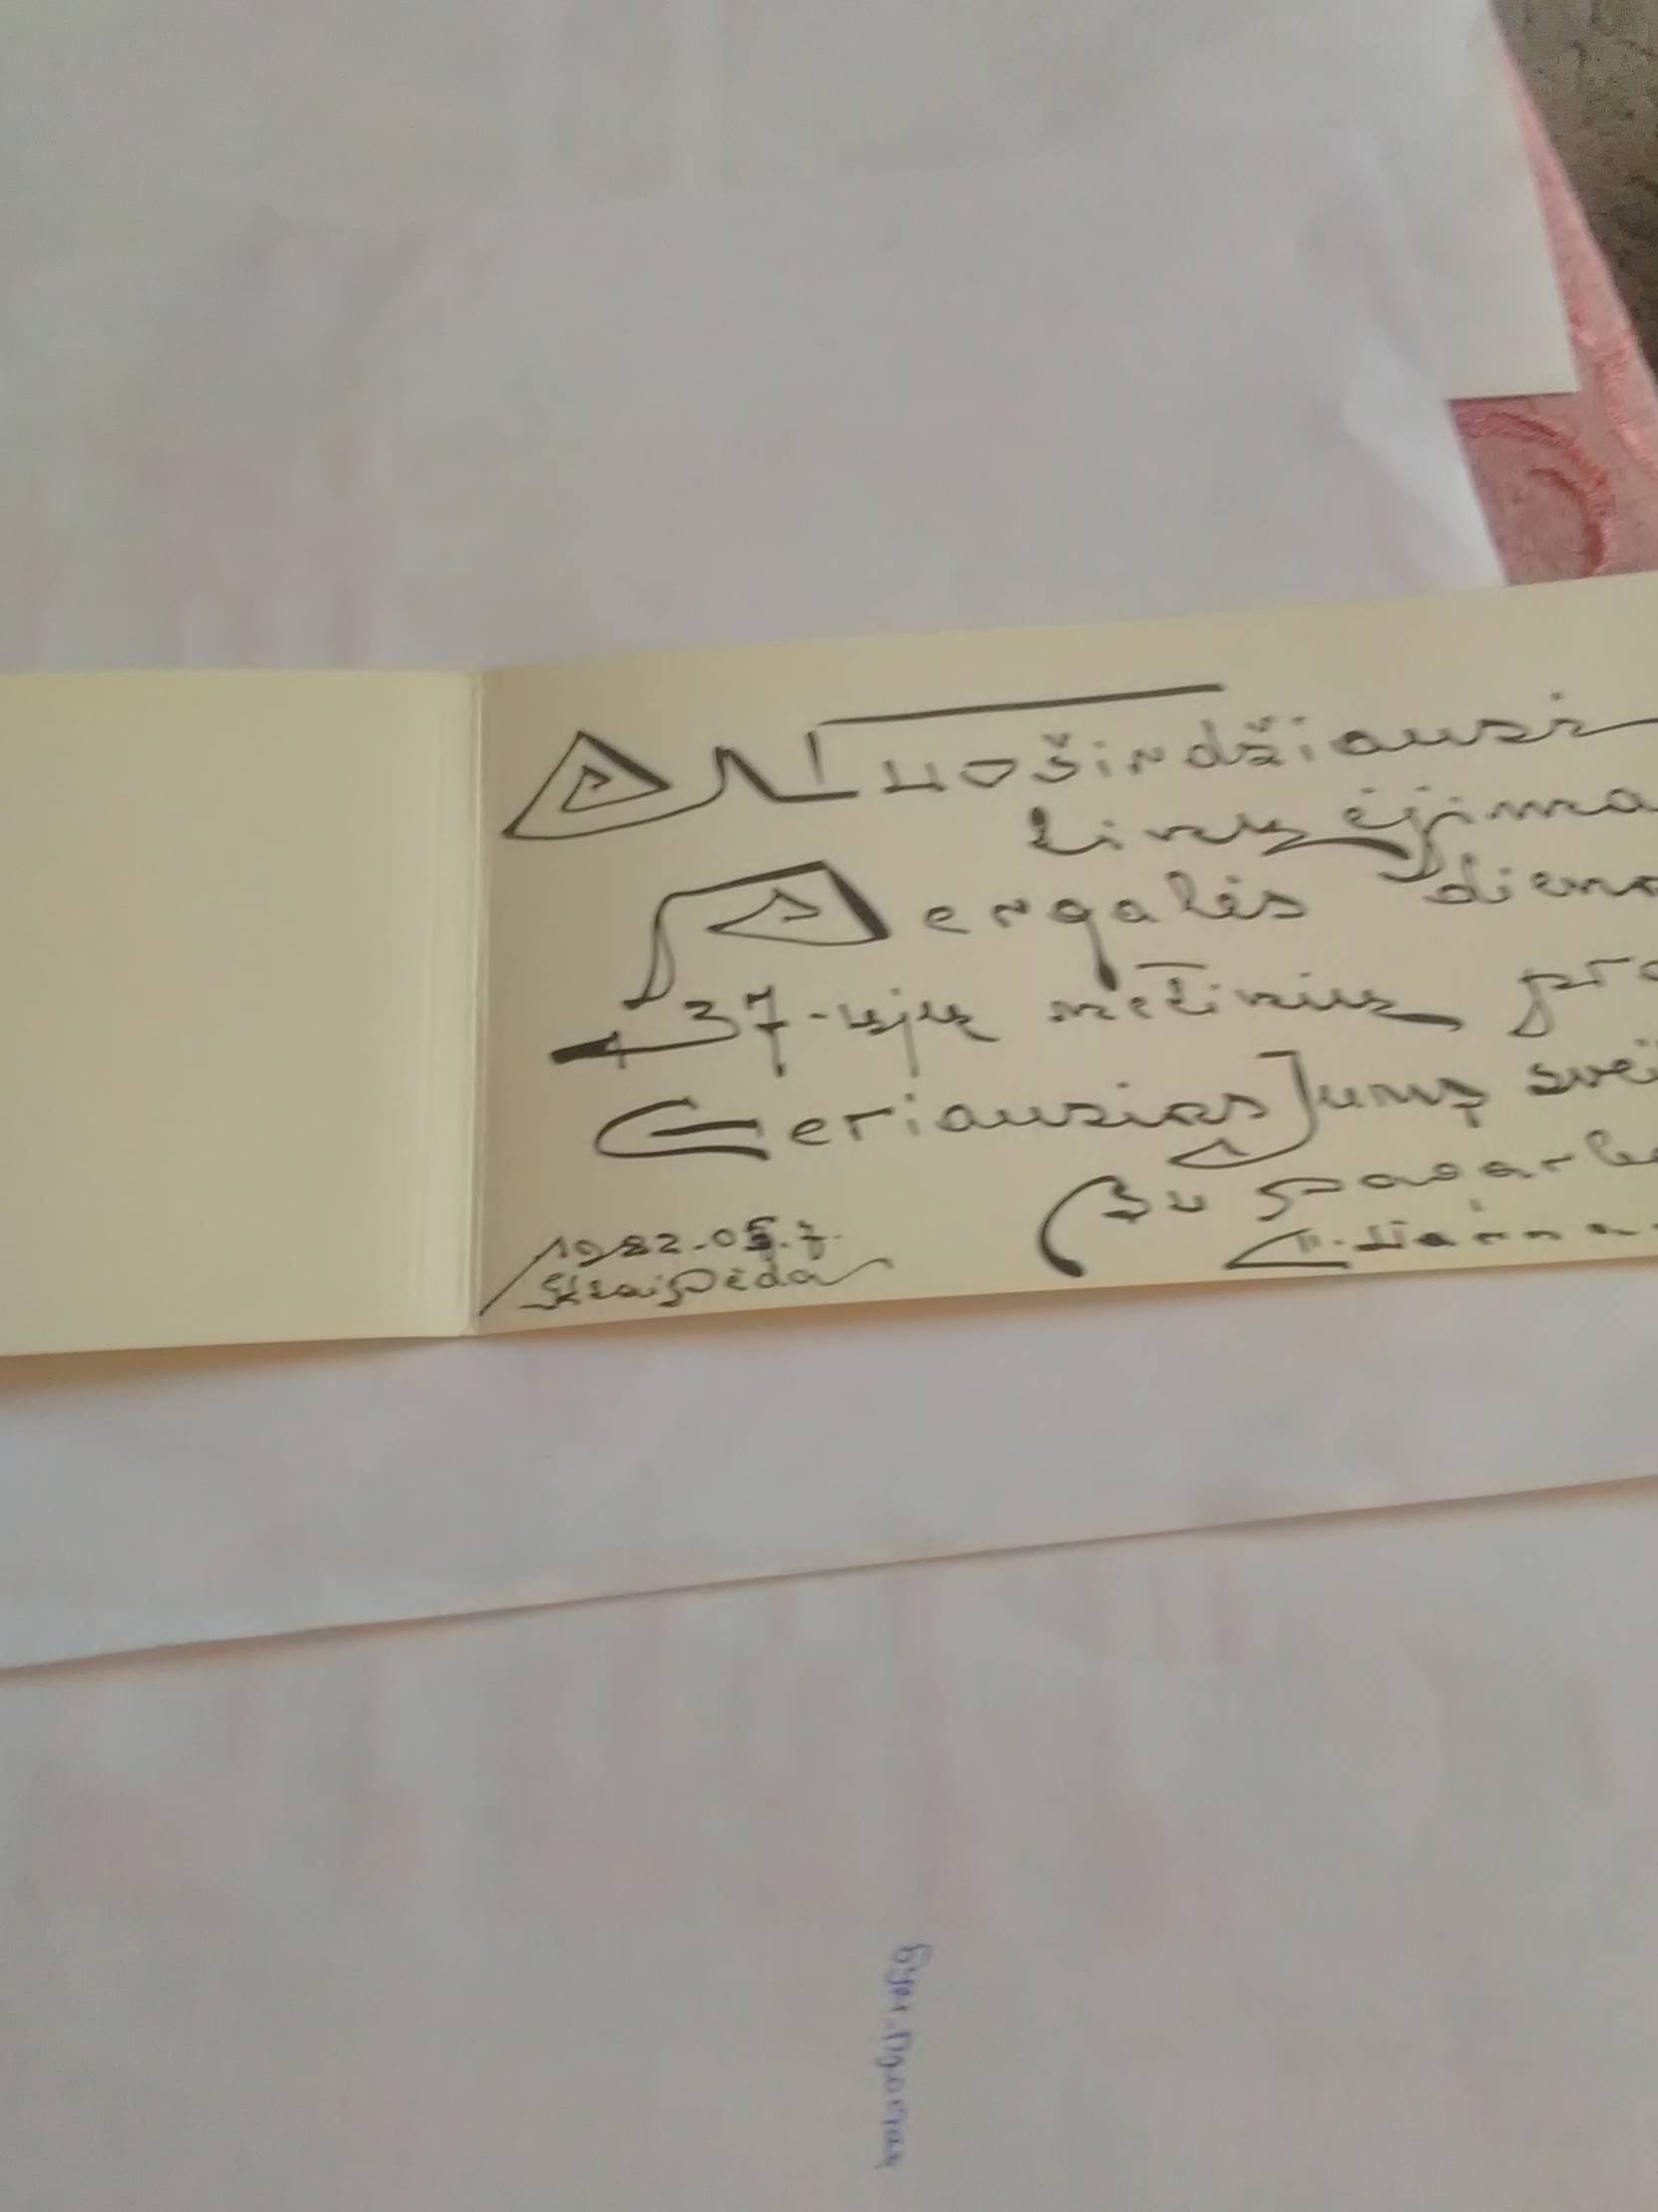 Nuoširdžiausi
linkėjima
Pergalės dieno
37-ųjų metinių pro
Geriausios Jums svei
Su pagarba
1982.05.7.
Klaipėda